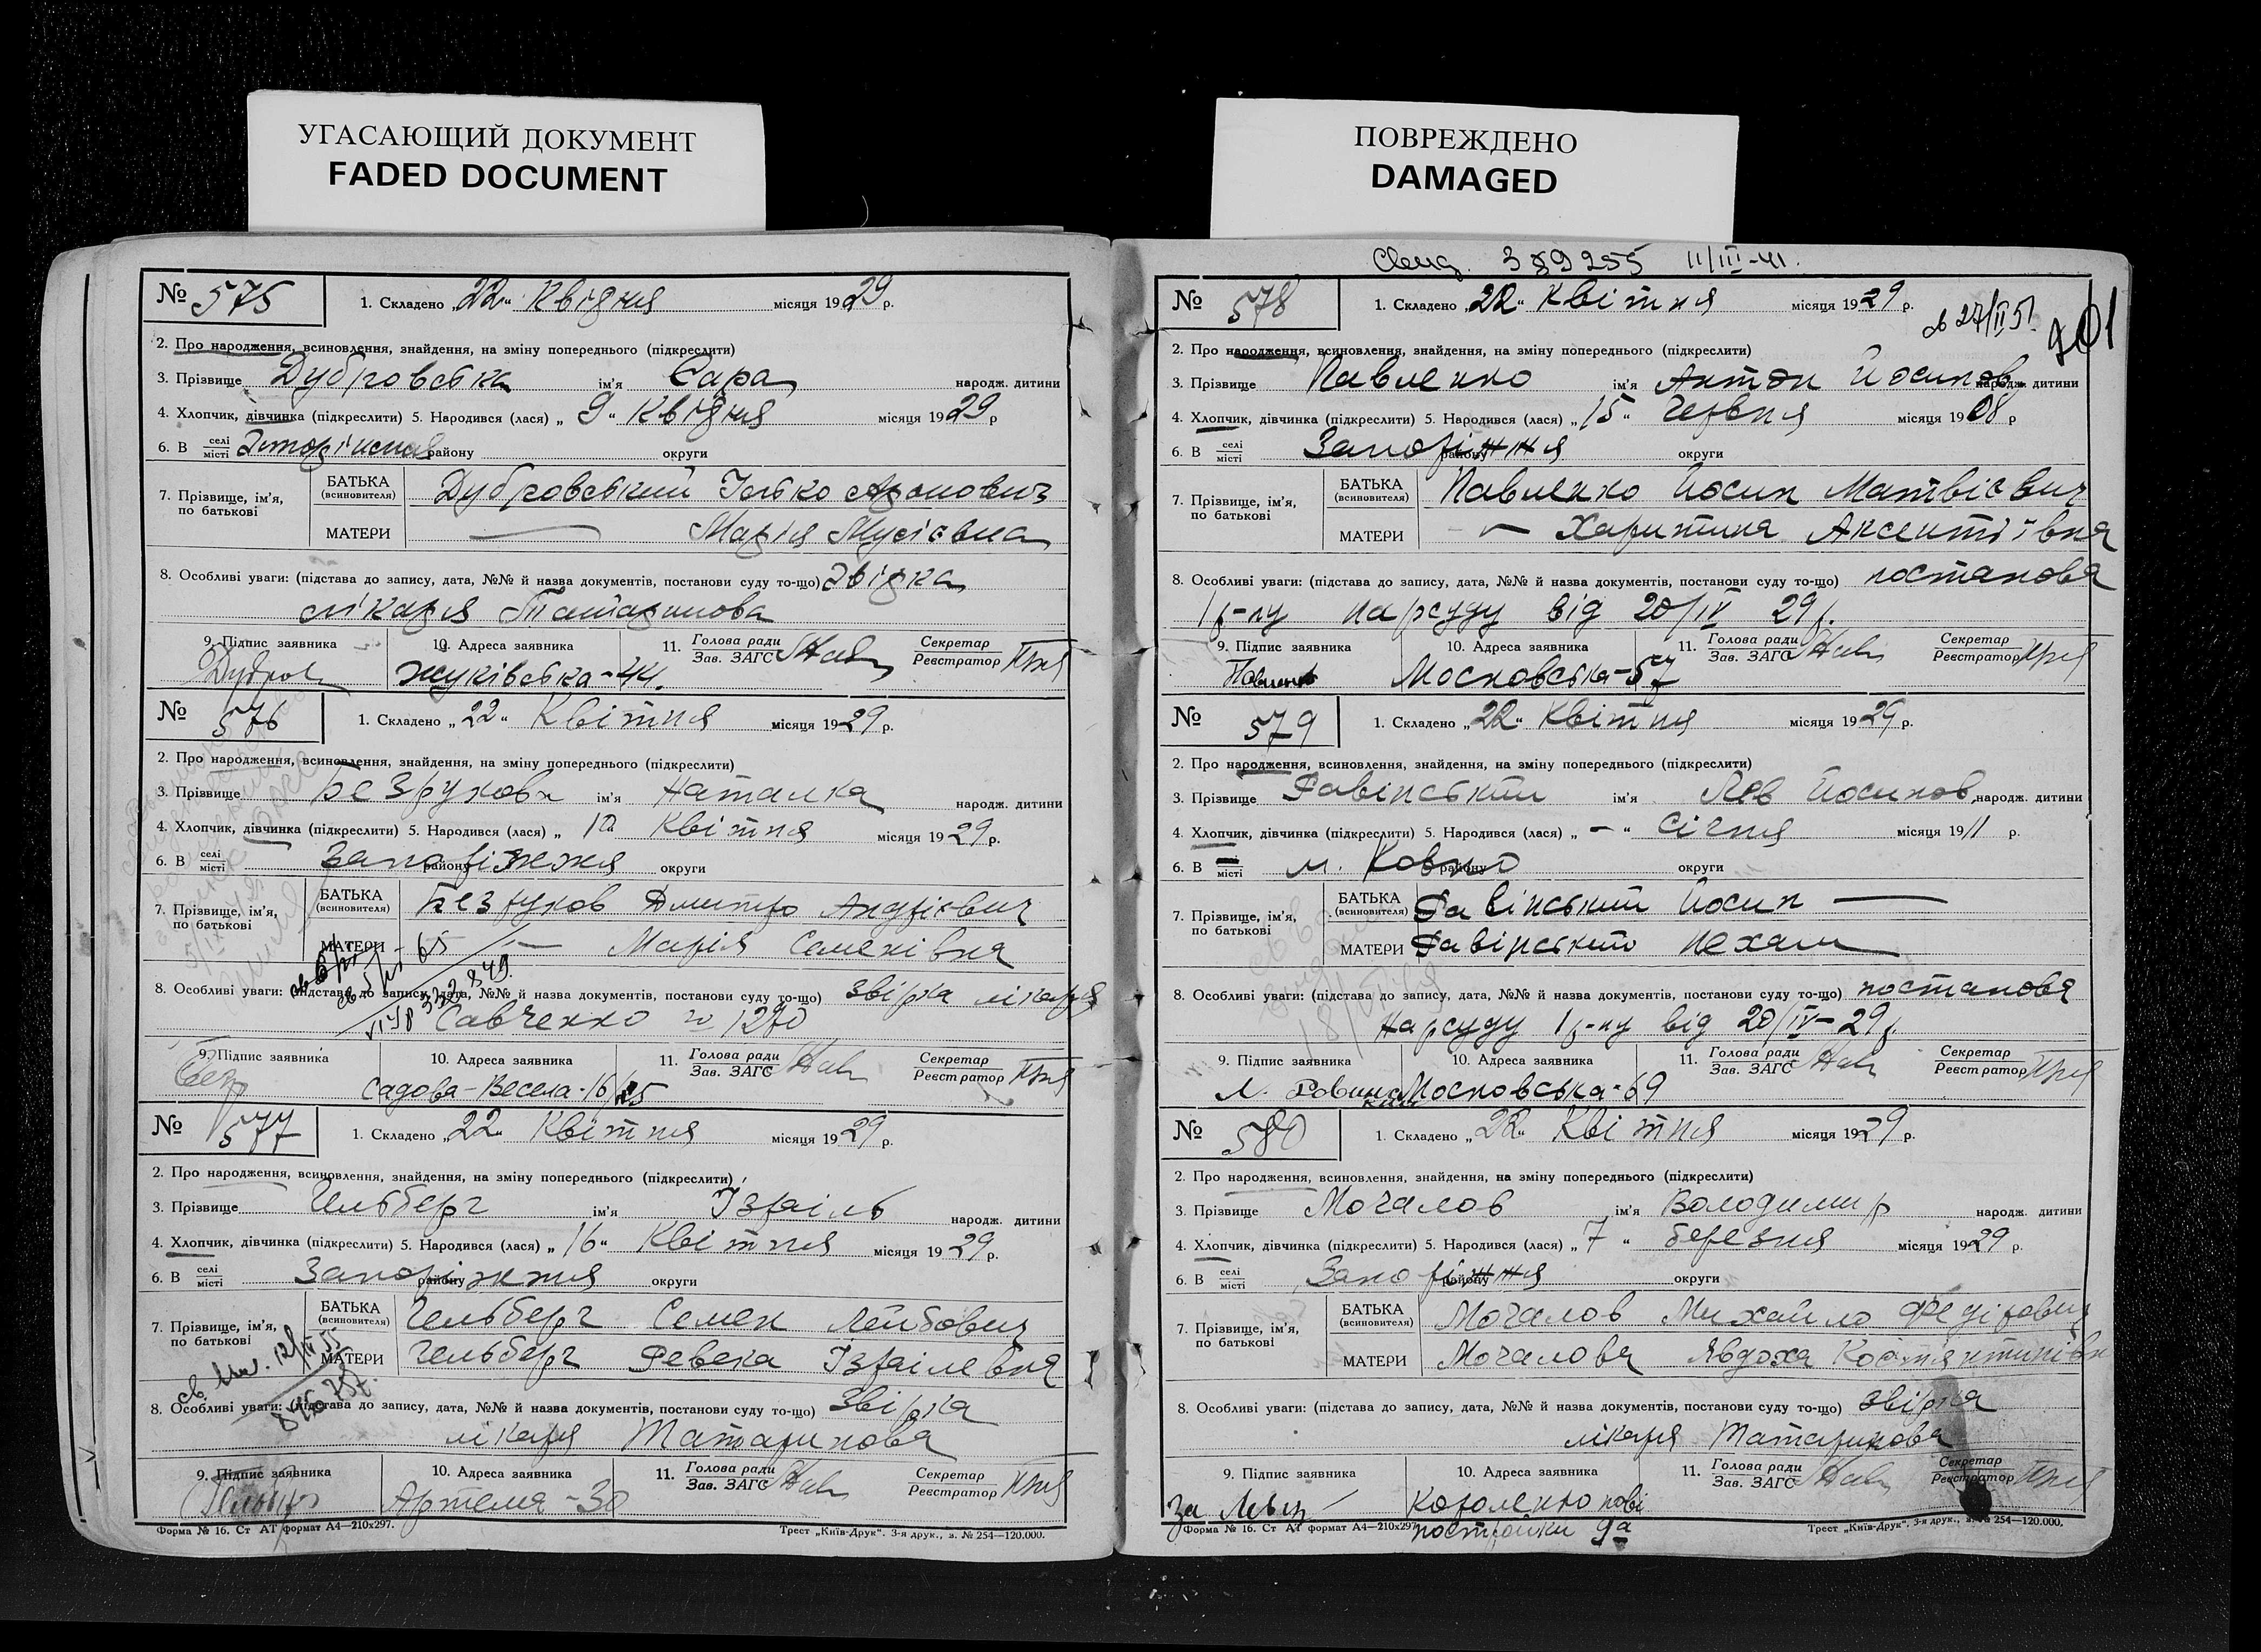 УГАСАЮЩИЙ ДОКУМЕНТ
FADED DOCUMENT
№ 575
1. Складено „22“ Квідня місяця 1929 р.
2. Про народження, всиновлення, знайдення, на зміну попереднього (підкреслити)
3. Прізвище Дубровська ім'я Сара народж. дитини
4. Хлопчик, дівчинка (підкреслити) 5. Народився (лася) „9“ Квідня місяця 1929 р
6. В селі місті району округи
7. Прізвище, ім'я, по батькові
БАТЬКА (всиновителя) Дубровський Іцько Аронович
МАТЕРИ — Марія Мусієвна
8. Особливі уваги: (підстава до запису, дата, №№ й назва документів, постанови суду то-що) звідка
лікаря Татаринова
9. Підпис заявника 10. Адреса заявника 11. Голова ради Зав. ЗАГС Секретар Реєстратор
Жуківська-44.
№ 576
1. Складено „22“ Квітня місяця 1929 р.
2. Про народження, всиновлення, знайдення, на зміну попереднього (підкреслити)
3. Прізвище Безрукова ім'я Наталка народж. дитини
4. Хлопчик, дівчинка (підкреслити) 5. Народився (лася) „ Квітня місяця 1929 р.
6. В селі місті Запоріжжя району округи
7. Прізвище, ім'я, по батькові
БАТЬКА (всиновителя) Безруков Дмитро Андрієвич
МАТЕРИ — Марія Семенівна
8. Особливі уваги: (підстава до запису, дата, №№ й назва документів, постанови суду то-що) звірка лікаря
Савченко № 1270
9. Підпис заявника 10. Адреса заявника 11. Голова ради Зав. ЗАГС Секретар Реєстратор
Садова-Весела-16/
№ 577
1. Складено „22“ Квітня місяця 1929 р.
2. Про народження, всиновлення, знайдення, на зміну попереднього (підкреслити)
3. Прізвище Гельберг ім'я Ізраіль народж. дитини
4. Хлопчик, дівчинка (підкреслити) 5. Народився (лася) „16“ Квітня місяця 1929 р.
6. В селі місті Запоріжжя району округи
7. Прізвище, ім'я, по батькові
БАТЬКА (всиновителя) Гельберг Семен Лейбович
МАТЕРИ Гельберг Ревека Ізраілевна
8. Особливі уваги: (підстава до запису, дата, №№ й назва документів, постанови суду то-що) звірка
лікаря Татаринова
9. Підпис заявника 10. Адреса заявника 11. Голова ради Зав. ЗАГС Секретар Реєстратор
Артема-30
Форма № 16. Ст АТ формат А4—210х297. Трест „Київ-Друк“. 3-я друк., з. № 254—120.000.
ПОВРЕЖДЕНО
DAMAGED
389255 11/III-41.
№ 578
1. Складено „22“ Квітня місяця 1929 р.
27/II 51. 701
2. Про народження, всиновлення, знайдення, на зміну попереднього (підкреслити)
3. Прізвище Павленко ім'я Антон Йосипов. народж. дитини
4. Хлопчик, дівчинка (підкреслити) 5. Народився (лася) „15“ Червня місяця 1908 р
6. В селі місті Запоріжжя району округи
7. Прізвище, ім'я, по батькові
БАТЬКА (всиновителя) Павленко Йосип Матвієвич
МАТЕРИ — Харитина Аксентіївна
8. Особливі уваги: (підстава до запису, дата, №№ й назва документів, постанови суду то-що) постанова
1 р-ну нарсуду від 20/IV 29 р.
9. Підпис заявника 10. Адреса заявника 11. Голова ради Зав. ЗАГС Секретар Реєстратор
Московська-57
№ 579
1. Складено „22“ Квітня місяця 1929 р.
2. Про народження, всиновлення, знайдення, на зміну попереднього (підкреслити)
3. Прізвище Равінський ім'я Лев Йосипов. народж. дитини
4. Хлопчик, дівчинка (підкреслити) 5. Народився (лася) „-“ Січня місяця 1911 р.
6. В селі місті м. Ковно району округи
7. Прізвище, ім'я, по батькові
БАТЬКА (всиновителя) Равінський Йосип —
МАТЕРИ Равінський Нехам
8. Особливі уваги: (підстава до запису, дата, №№ й назва документів, постанови суду то-що) постанова
нарсуду 1 р-ну від 20/IV-29 р.
9. Підпис заявника 10. Адреса заявника 11. Голова ради Зав. ЗАГС Секретар Реєстратор
Московська-69
№ 580
1. Складено „22“ Квітня місяця 1929 р.
2. Про народження, всиновлення, знайдення, на зміну попереднього (підкреслити)
3. Прізвище Мочалов ім'я Володимир народж. дитини
4. Хлопчик, дівчинка (підкреслити) 5. Народився (лася) „7“ березня місяця 1929 р.
6. В селі місті Запоріжжя району округи
7. Прізвище, ім'я, по батькові
БАТЬКА (всиновителя) Мочалов Михайло Федірович
МАТЕРИ Мочалова Явдоха Костянтинівн
8. Особливі уваги: (підстава до запису, дата, №№ й назва документів, постанови суду то-що) звірка
лікаря Татаринова
9. Підпис заявника 10. Адреса заявника 11. Голова ради Зав. ЗАГС Секретар Реєстратор
Короленко нові
постройки 9а
Форма № 16. Ст АТ формат А4—210х297. Трест „Київ-Друк“. 3-я друк., з. № 254—120.000.